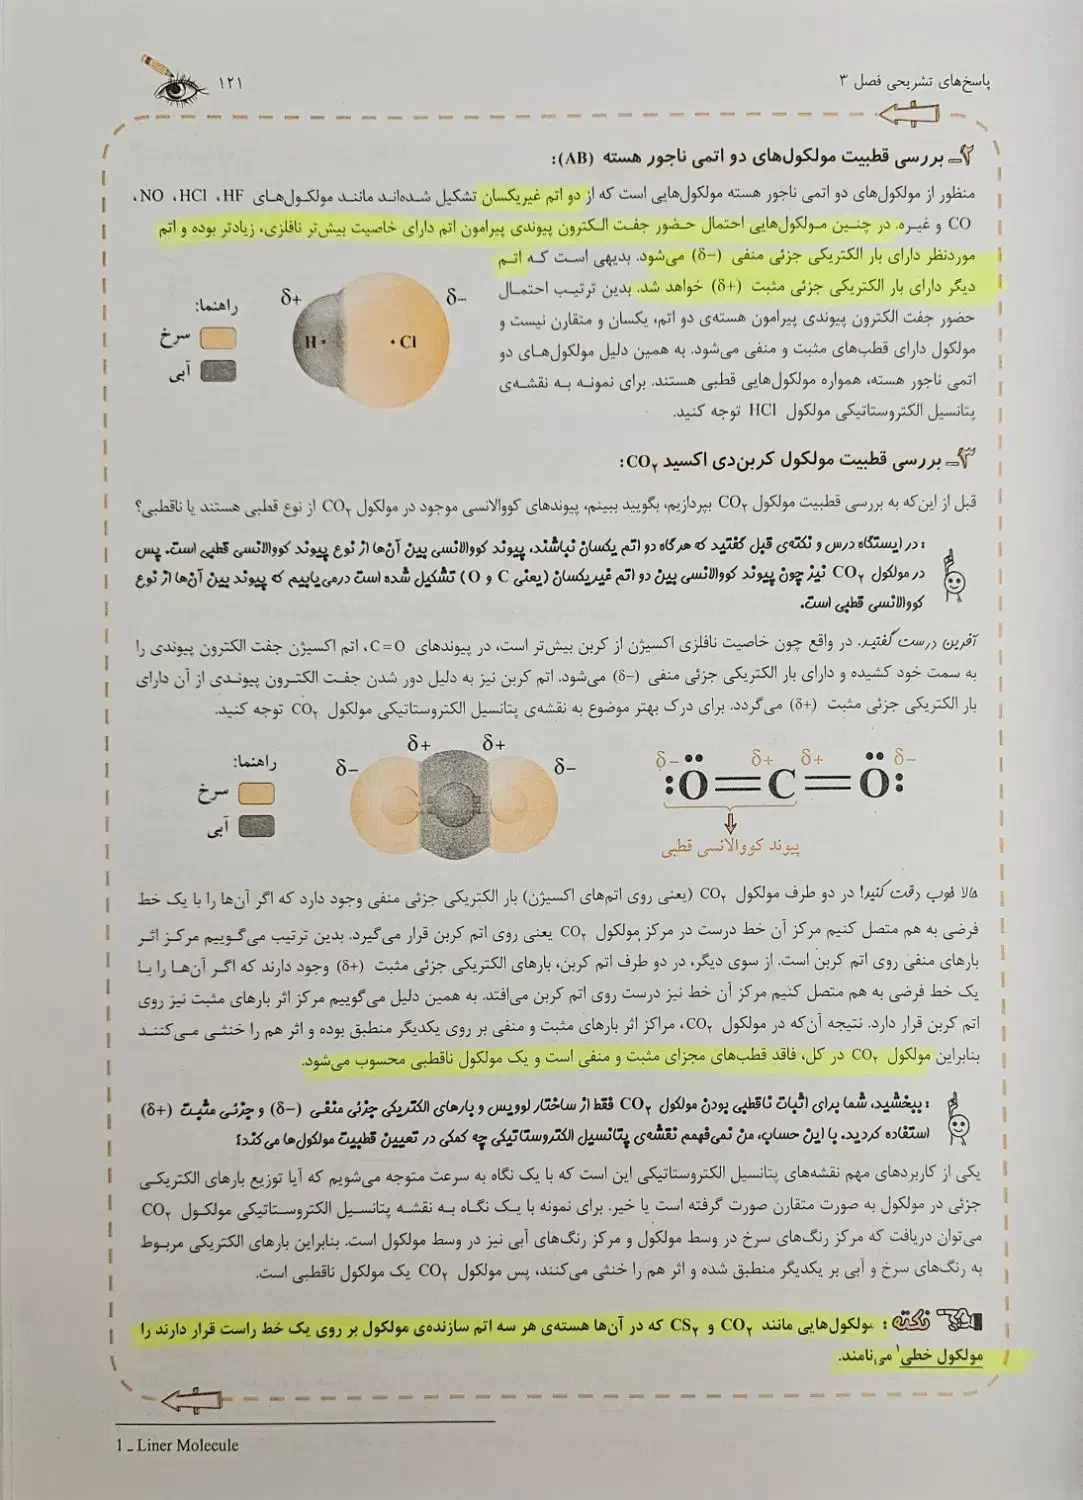 پاسخ‌های تشریحی فصل ۳
۱۲۱
۲ـ بررسی قطبیت مولکول‌های دو اتمی ناجور هسته (AB):
منظور از مولکول‌های دو اتمی ناجور هسته مولکول‌هایی است که از دو اتم غیریکسان تشکیل شده‌اند مانند مولکول‌های HF، HCl، NO،
CO و غیره. در چنین مولکول‌هایی احتمال حضور جفت الکترون پیوندی پیرامون اتم دارای خاصیت بیش‌تر نافلزی، زیادتر بوده و اتم
موردنظر دارای بار الکتریکی جزئی منفی (δ−) می‌شود. بدیهی است که اتم
دیگر دارای بار الکتریکی جزئی مثبت (δ+) خواهد شد. بدین ترتیب احتمال
حضور جفت الکترون پیوندی پیرامون هسته‌ی دو اتم، یکسان و متقارن نیست و
مولکول دارای قطب‌های مثبت و منفی می‌شود. به همین دلیل مولکول‌های دو
اتمی ناجور هسته، همواره مولکول‌هایی قطبی هستند. برای نمونه به نقشه‌ی
پتانسیل الکتروستاتیکی مولکول HCl توجه کنید.
δ+ δ−
H Cl
راهنما:
سرخ
آبی
۳ـ بررسی قطبیت مولکول کربن‌دی اکسید CO۲:
قبل از این‌که به بررسی قطبیت مولکول CO۲ بپردازیم، بگویید ببینم، پیوندهای کووالانسی موجود در مولکول CO۲ از نوع قطبی هستند یا ناقطبی؟
: در ایستگاه درس و نکته‌ی قبل گفتید که هرگاه دو اتم یکسان نباشند، پیوند کووالانسی بین آن‌ها از نوع پیوند کووالانسی قطبی است. پس
در مولکول CO۲ نیز چون پیوند کووالانسی بین دو اتم غیریکسان (یعنی C و O) تشکیل شده است درمی‌یابیم که پیوند بین آن‌ها از نوع
کووالانسی قطبی است.
آفرین درست گفتید. در واقع چون خاصیت نافلزی اکسیژن از کربن بیش‌تر است، در پیوندهای C=O، اتم اکسیژن جفت الکترون پیوندی را
به سمت خود کشیده و دارای بار الکتریکی جزئی منفی (δ−) می‌شود. اتم کربن نیز به دلیل دور شدن جفت الکترون پیوندی از آن دارای
بار الکتریکی جزئی مثبت (δ+) می‌گردد. برای درک بهتر موضوع به نقشه‌ی پتانسیل الکتروستاتیکی مولکول CO۲ توجه کنید.
δ− δ+ δ+ δ−
:Ö=C=Ö:
پیوند کووالانسی قطبی
δ− δ+ δ+ δ−
راهنما:
سرخ
آبی
حالا خوب دقت کنید! در دو طرف مولکول CO۲ (یعنی روی اتم‌های اکسیژن) بار الکتریکی جزئی منفی وجود دارد که اگر آن‌ها را با یک خط
فرضی به هم متصل کنیم مرکز آن خط درست در مرکز مولکول CO۲ یعنی روی اتم کربن قرار می‌گیرد. بدین ترتیب می‌گوییم مرکز اثر
بارهای منفی روی اتم کربن است. از سوی دیگر، در دو طرف اتم کربن، بارهای الکتریکی جزئی مثبت (δ+) وجود دارند که اگر آن‌ها را با
یک خط فرضی به هم متصل کنیم مرکز آن خط نیز درست روی اتم کربن می‌افتد. به همین دلیل می‌گوییم مرکز اثر بارهای مثبت نیز روی
اتم کربن قرار دارد. نتیجه آن‌که در مولکول CO۲، مراکز اثر بارهای مثبت و منفی بر روی یکدیگر منطبق بوده و اثر هم را خنثی می‌کنند
بنابراین مولکول CO۲ در کل، فاقد قطب‌های مجزای مثبت و منفی است و یک مولکول ناقطبی محسوب می‌شود.
: ببخشید، شما برای اثبات ناقطبی بودن مولکول CO۲ فقط از ساختار لوویس و بارهای الکتریکی جزئی منفی (δ−) و جزئی مثبت (δ+)
استفاده کردید. با این حساب، من نمی‌فهمم نقشه‌ی پتانسیل الکتروستاتیکی چه کمکی در تعیین قطبیت مولکول‌ها می‌کند؟
یکی از کاربردهای مهم نقشه‌های پتانسیل الکتروستاتیکی این است که با یک نگاه به سرعت متوجه می‌شویم که آیا توزیع بارهای الکتریکی
جزئی در مولکول به صورت متقارن صورت گرفته است یا خیر. برای نمونه با یک نگاه به نقشه پتانسیل الکتروستاتیکی مولکول CO۲
می‌توان دریافت که مرکز رنگ‌های سرخ در وسط مولکول و مرکز رنگ‌های آبی نیز در وسط مولکول است. بنابراین بارهای الکتریکی مربوط
به رنگ‌های سرخ و آبی بر یکدیگر منطبق شده و اثر هم را خنثی می‌کنند، پس مولکول CO۲ یک مولکول ناقطبی است.
نکته: مولکول‌هایی مانند CO۲ و CS۲ که در آن‌ها هسته‌ی هر سه اتم سازنده‌ی مولکول بر روی یک خط راست قرار دارند را
مولکول خطی۱ می‌نامند.
1 ـ Liner Molecule